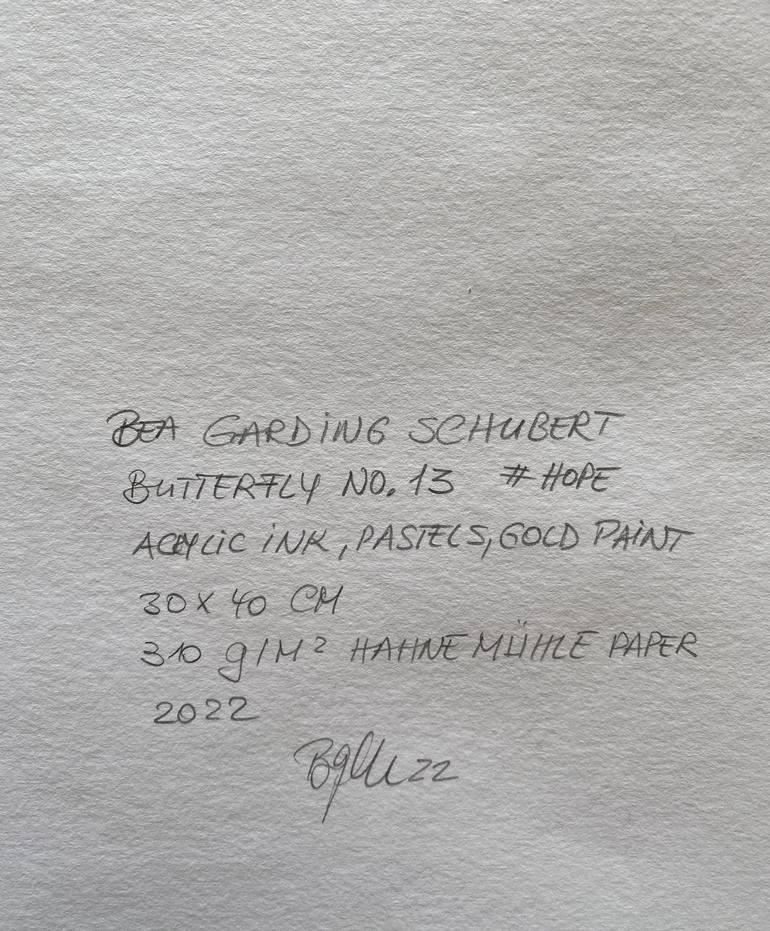 BEA GARDING SCHUBERT
BUTTERFLY NO. 13 # HOPE
ACRYLIC INK, PASTELS, GOLD PAINT
30 X 40 CM
310 g/M² HAHNEMÜHLE PAPER
2022
22